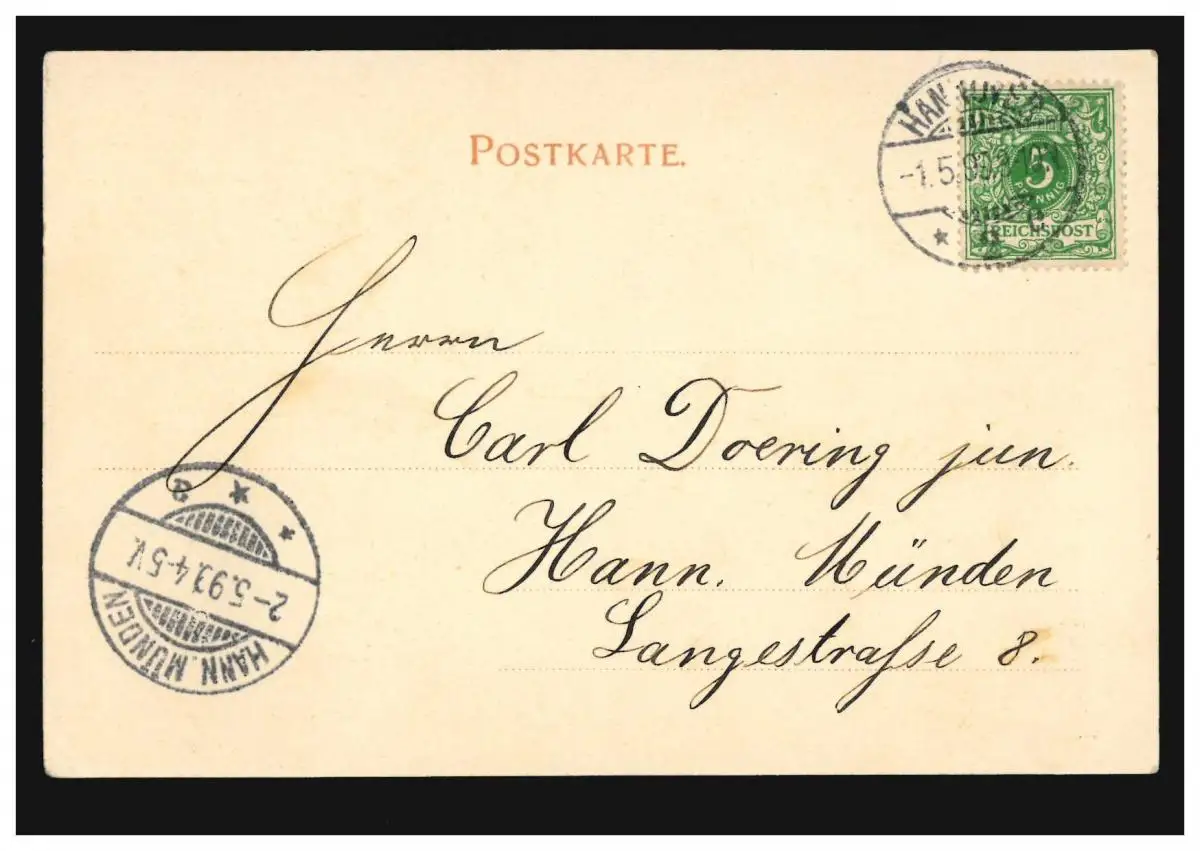 POSTKARTE.
HANNOVER
-1.5.99.
* 2 c
5
PFENNIG
REICHSPOST
Herrn
Carl Doering jun.
Hann. Münden
Langestraſse 8.
HANN. MÜNDEN
2-5.99.4-5V.
* * a